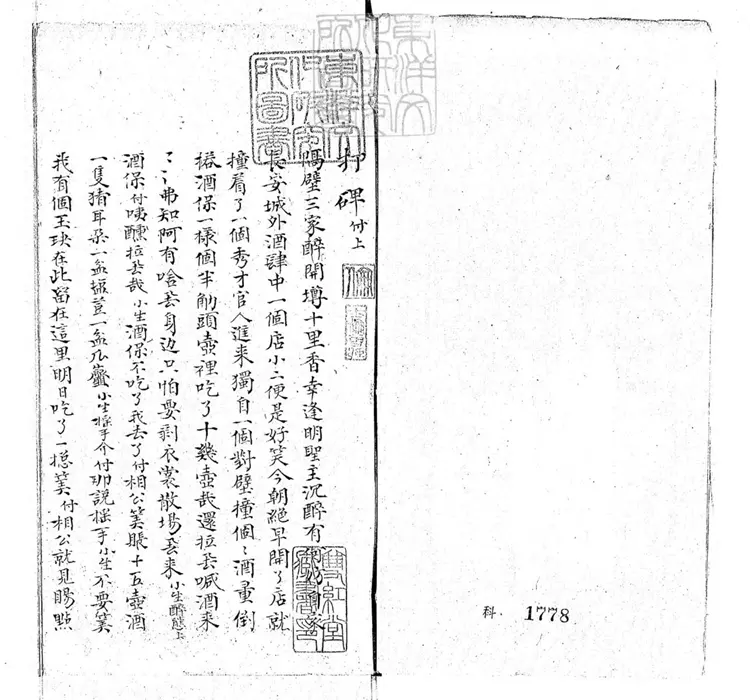 打碑 付上
隔壁三家醉開罈十里香幸逢明聖主沉醉有
長安城外酒肆中一個店小二便是好笑今朝絕早開了店就
撞着了一個秀才官人進來獨自一個對壁撞個〻酒量倒
酒保一樣個半觔頭壺裡吃了十幾壺哉還拉厾喊酒來
〻〻弗知阿有啥厾身边只怕要剥衣裳散場厾來 小生醉態上
酒保付咦醺拉厾哉 小生酒保不吃了我去了付相公筭賬十五壺酒
一隻猪耳朵一盆 一盆 小生搖手介付 説搖手小生不要筭
我有個玉玦在此畱在這里明日吃了一捴筭付相公就見賜點
東洋文化研究所圖書
雙紅堂藏書印
科. 1778